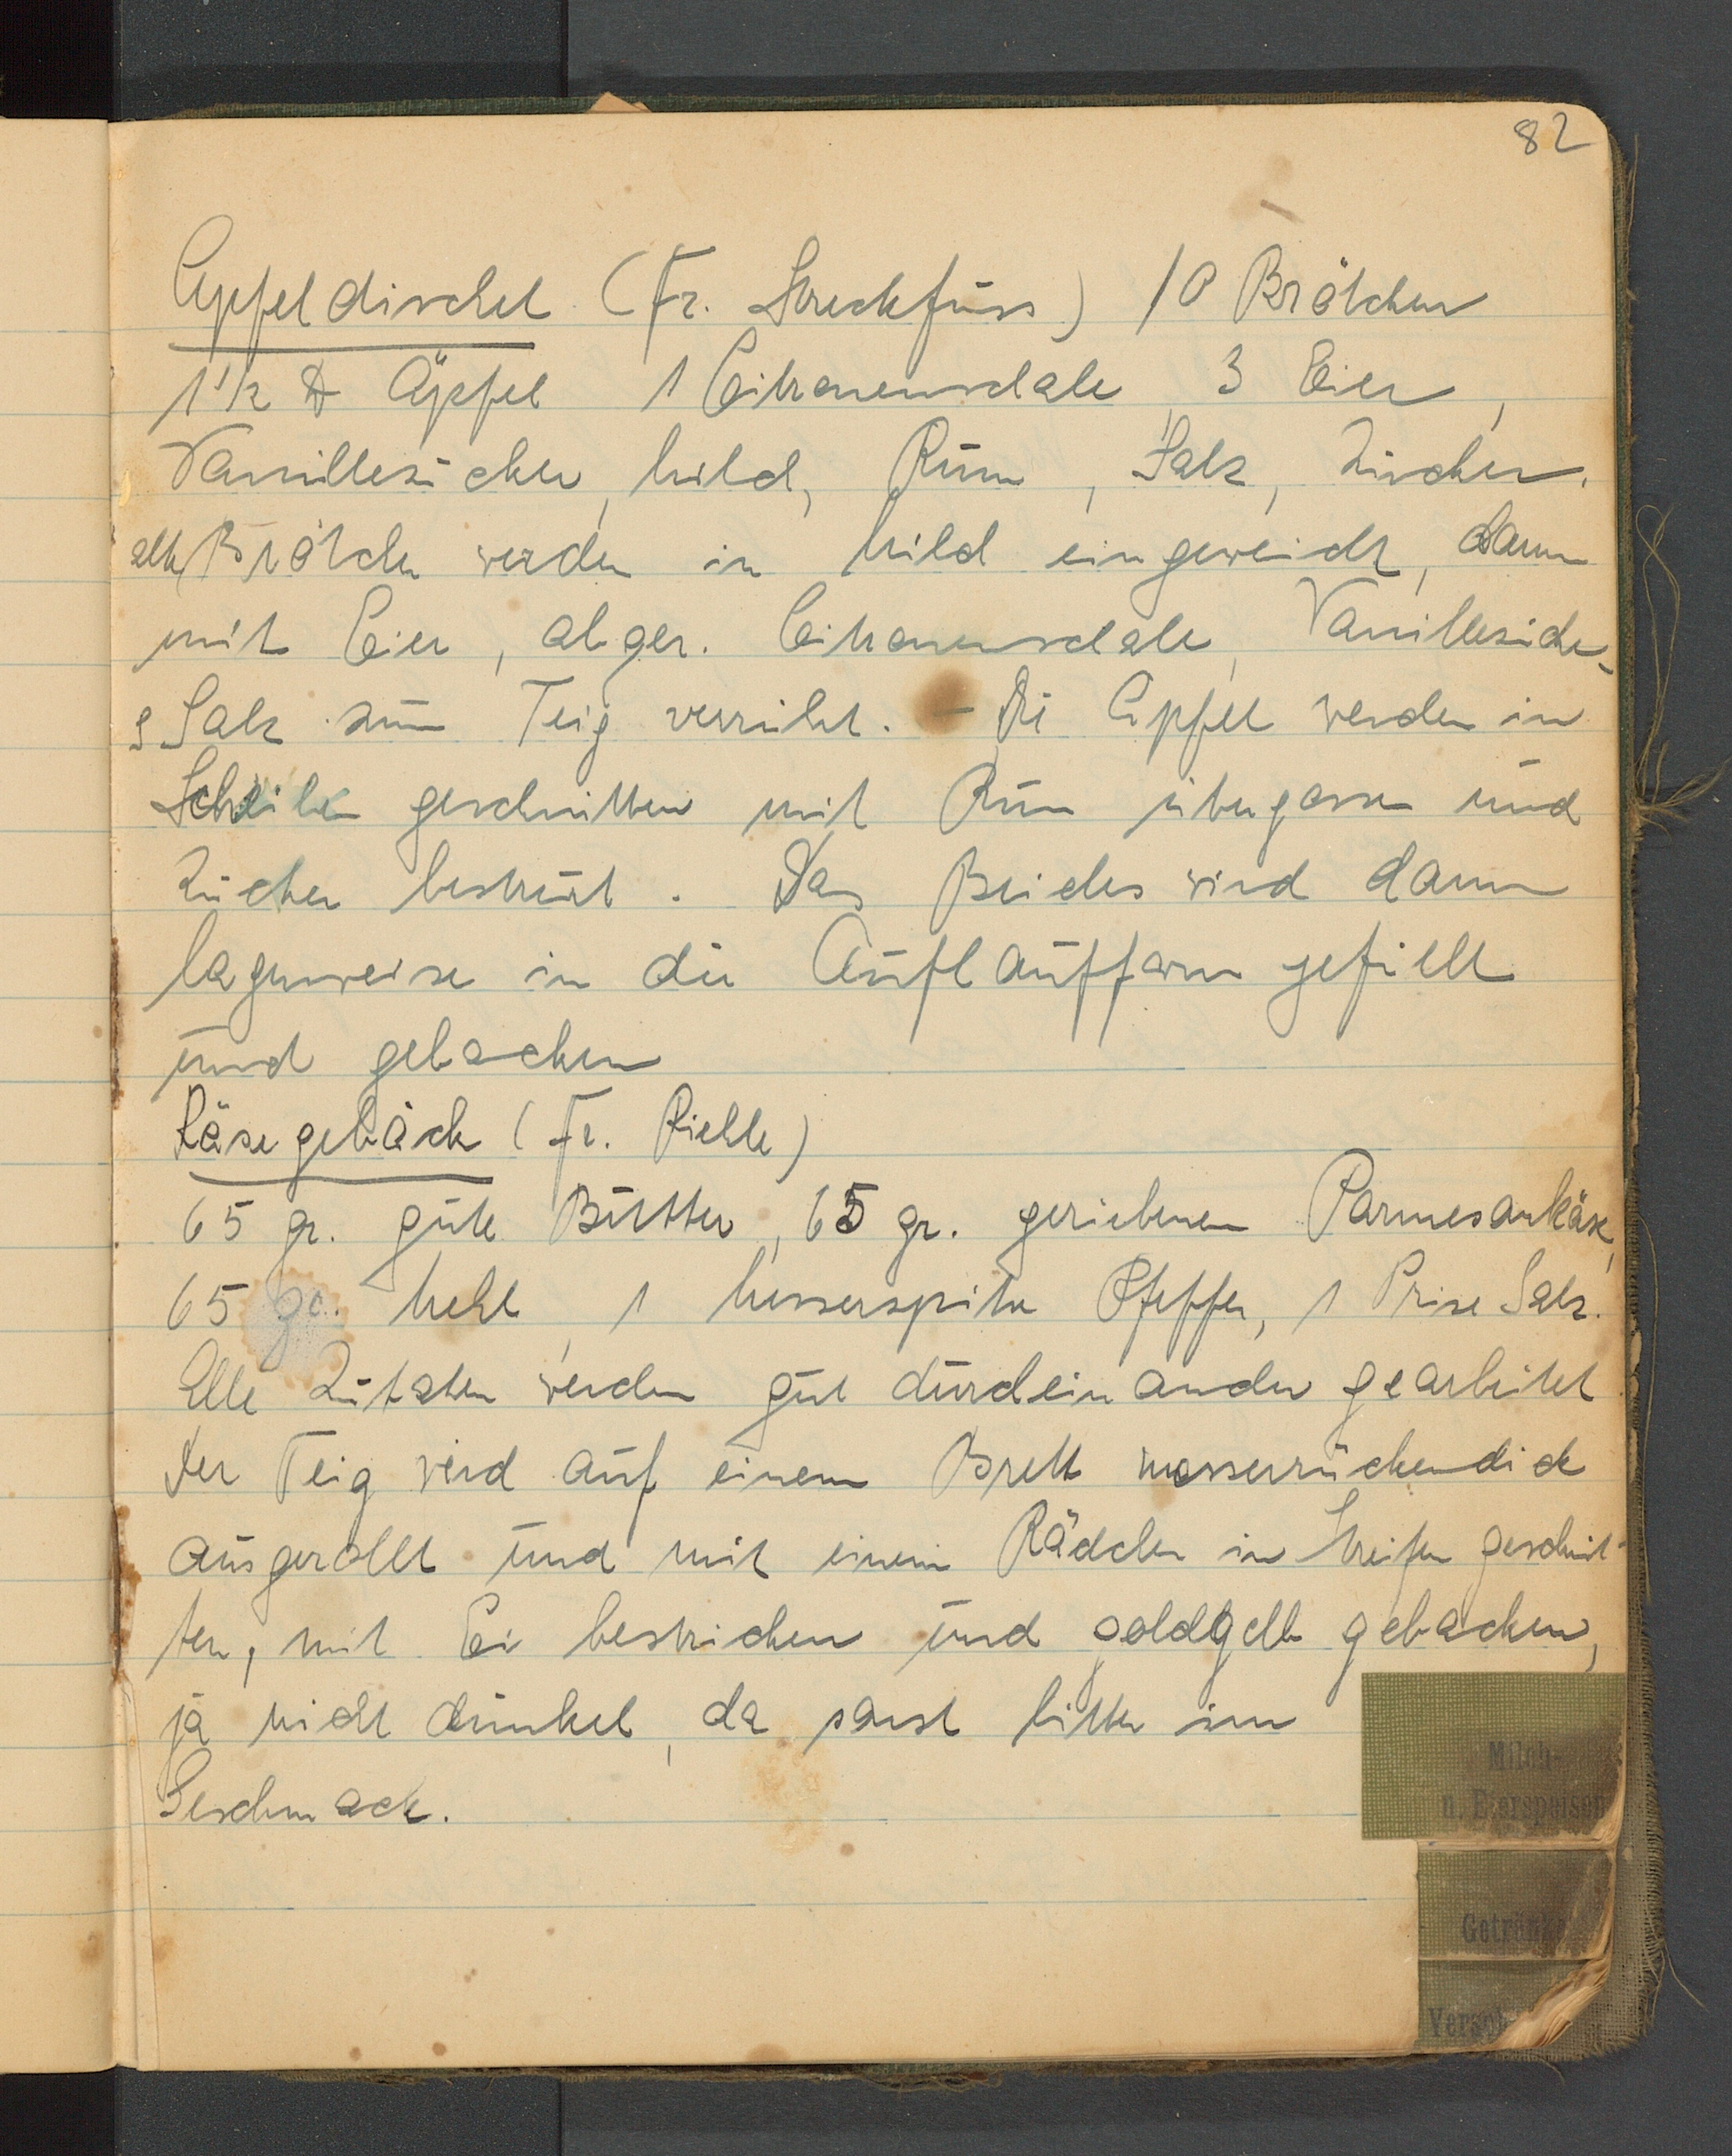 82
Apfeldischel (Fr. Streckfuss) 10 Brötchen
1 1/2 ℔ Äpfel 1 Citronenschale, 3 Eier,
Vanillezucker, Milch, Rum, Salz, Zucker.
alte Brötchen werden in Milch eingeweicht, dann
mit Eier, abger. Citronenschale, Vanillezucke-
r Salz zum Teig verrührt. – Die Apfel werden in
Scheiben geschnitten mit Rum übergossen und
Zucker bestreut. Das Beides wird dann
lagenweise in die Auflaufform gefüllt
und gebacken
Käsegebäck (Fr. Riehle)
65 gr. gute Butter, 65 gr. geriebenen Parmesankäse,
65 gr. Mehl, 1 Messerspitze Pfeffer, 1 Prise Salz.
Alle Zutaten werden gut durcheinander gearbeitet
Der Teig wird auf einem Brett messerrückendick
ausgerollt und mit einem Rädchen in Streifen geschnit-
ten, mit Ei bestrichen und goldgelb gebacken,
ja nicht dunkel, da sonst bitter im
Geschmack.
Milch-
u. Eierspeisen
Getränke